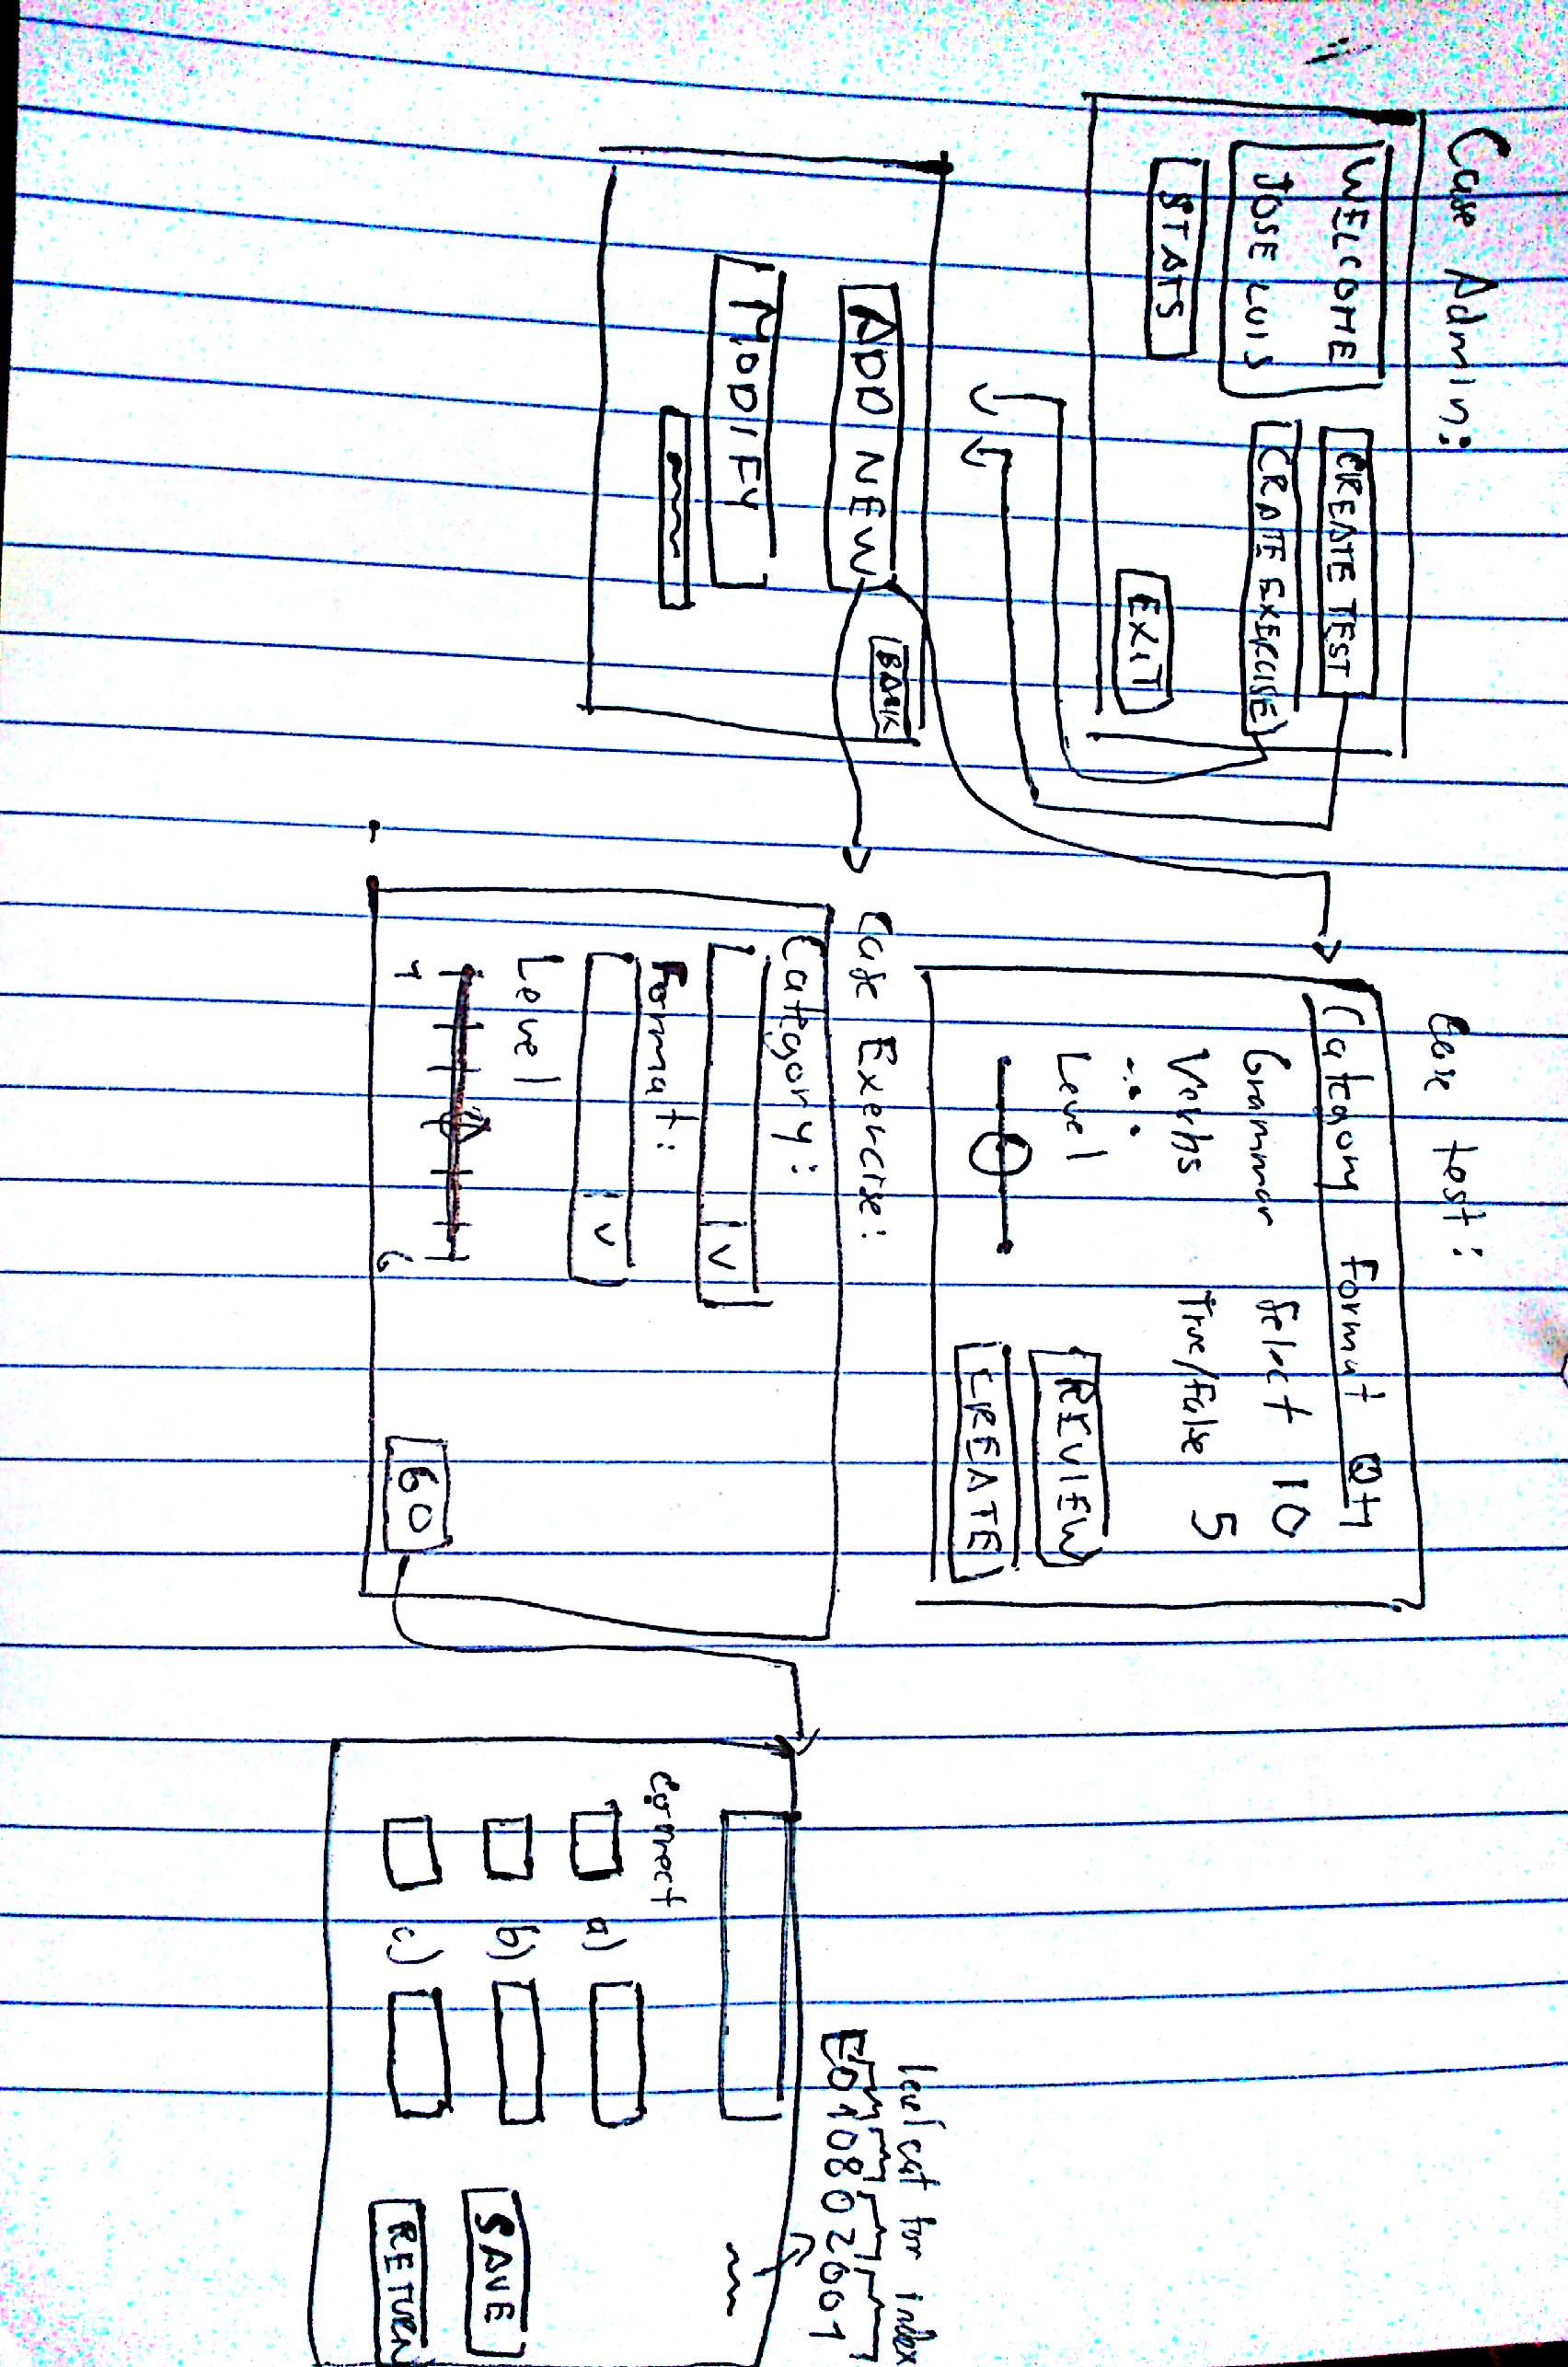 Case Admin:
WELCOME
JOSE LUIS
CREATE TEST
CRATE EXERCISE
STATS
EXIT
ADD NEW
BACK
MODIFY
Case test:
Category Format Qty
Grammar Select 10
Verbs True/False 5
...
Level
REVIEW
CREATE
Case Exercise:
Category:
V
Format:
V
Level
1 6
GO
level cat for index
E010802001
correct
a)
b)
c)
SAVE
RETURN